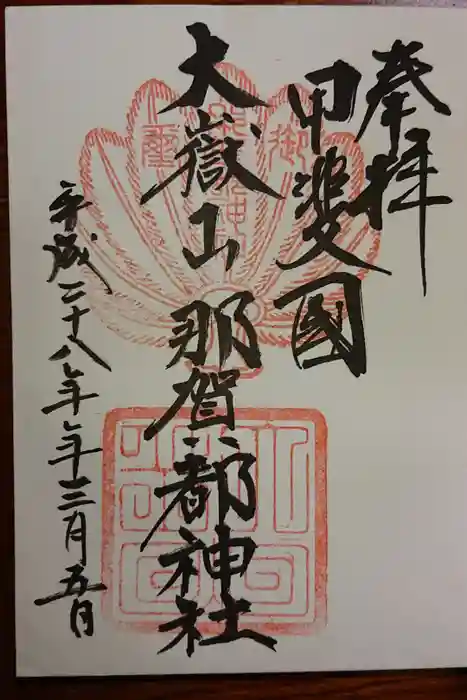 奉拝
甲斐國
大嶽山那賀都神社
平成二十八年年三月五日